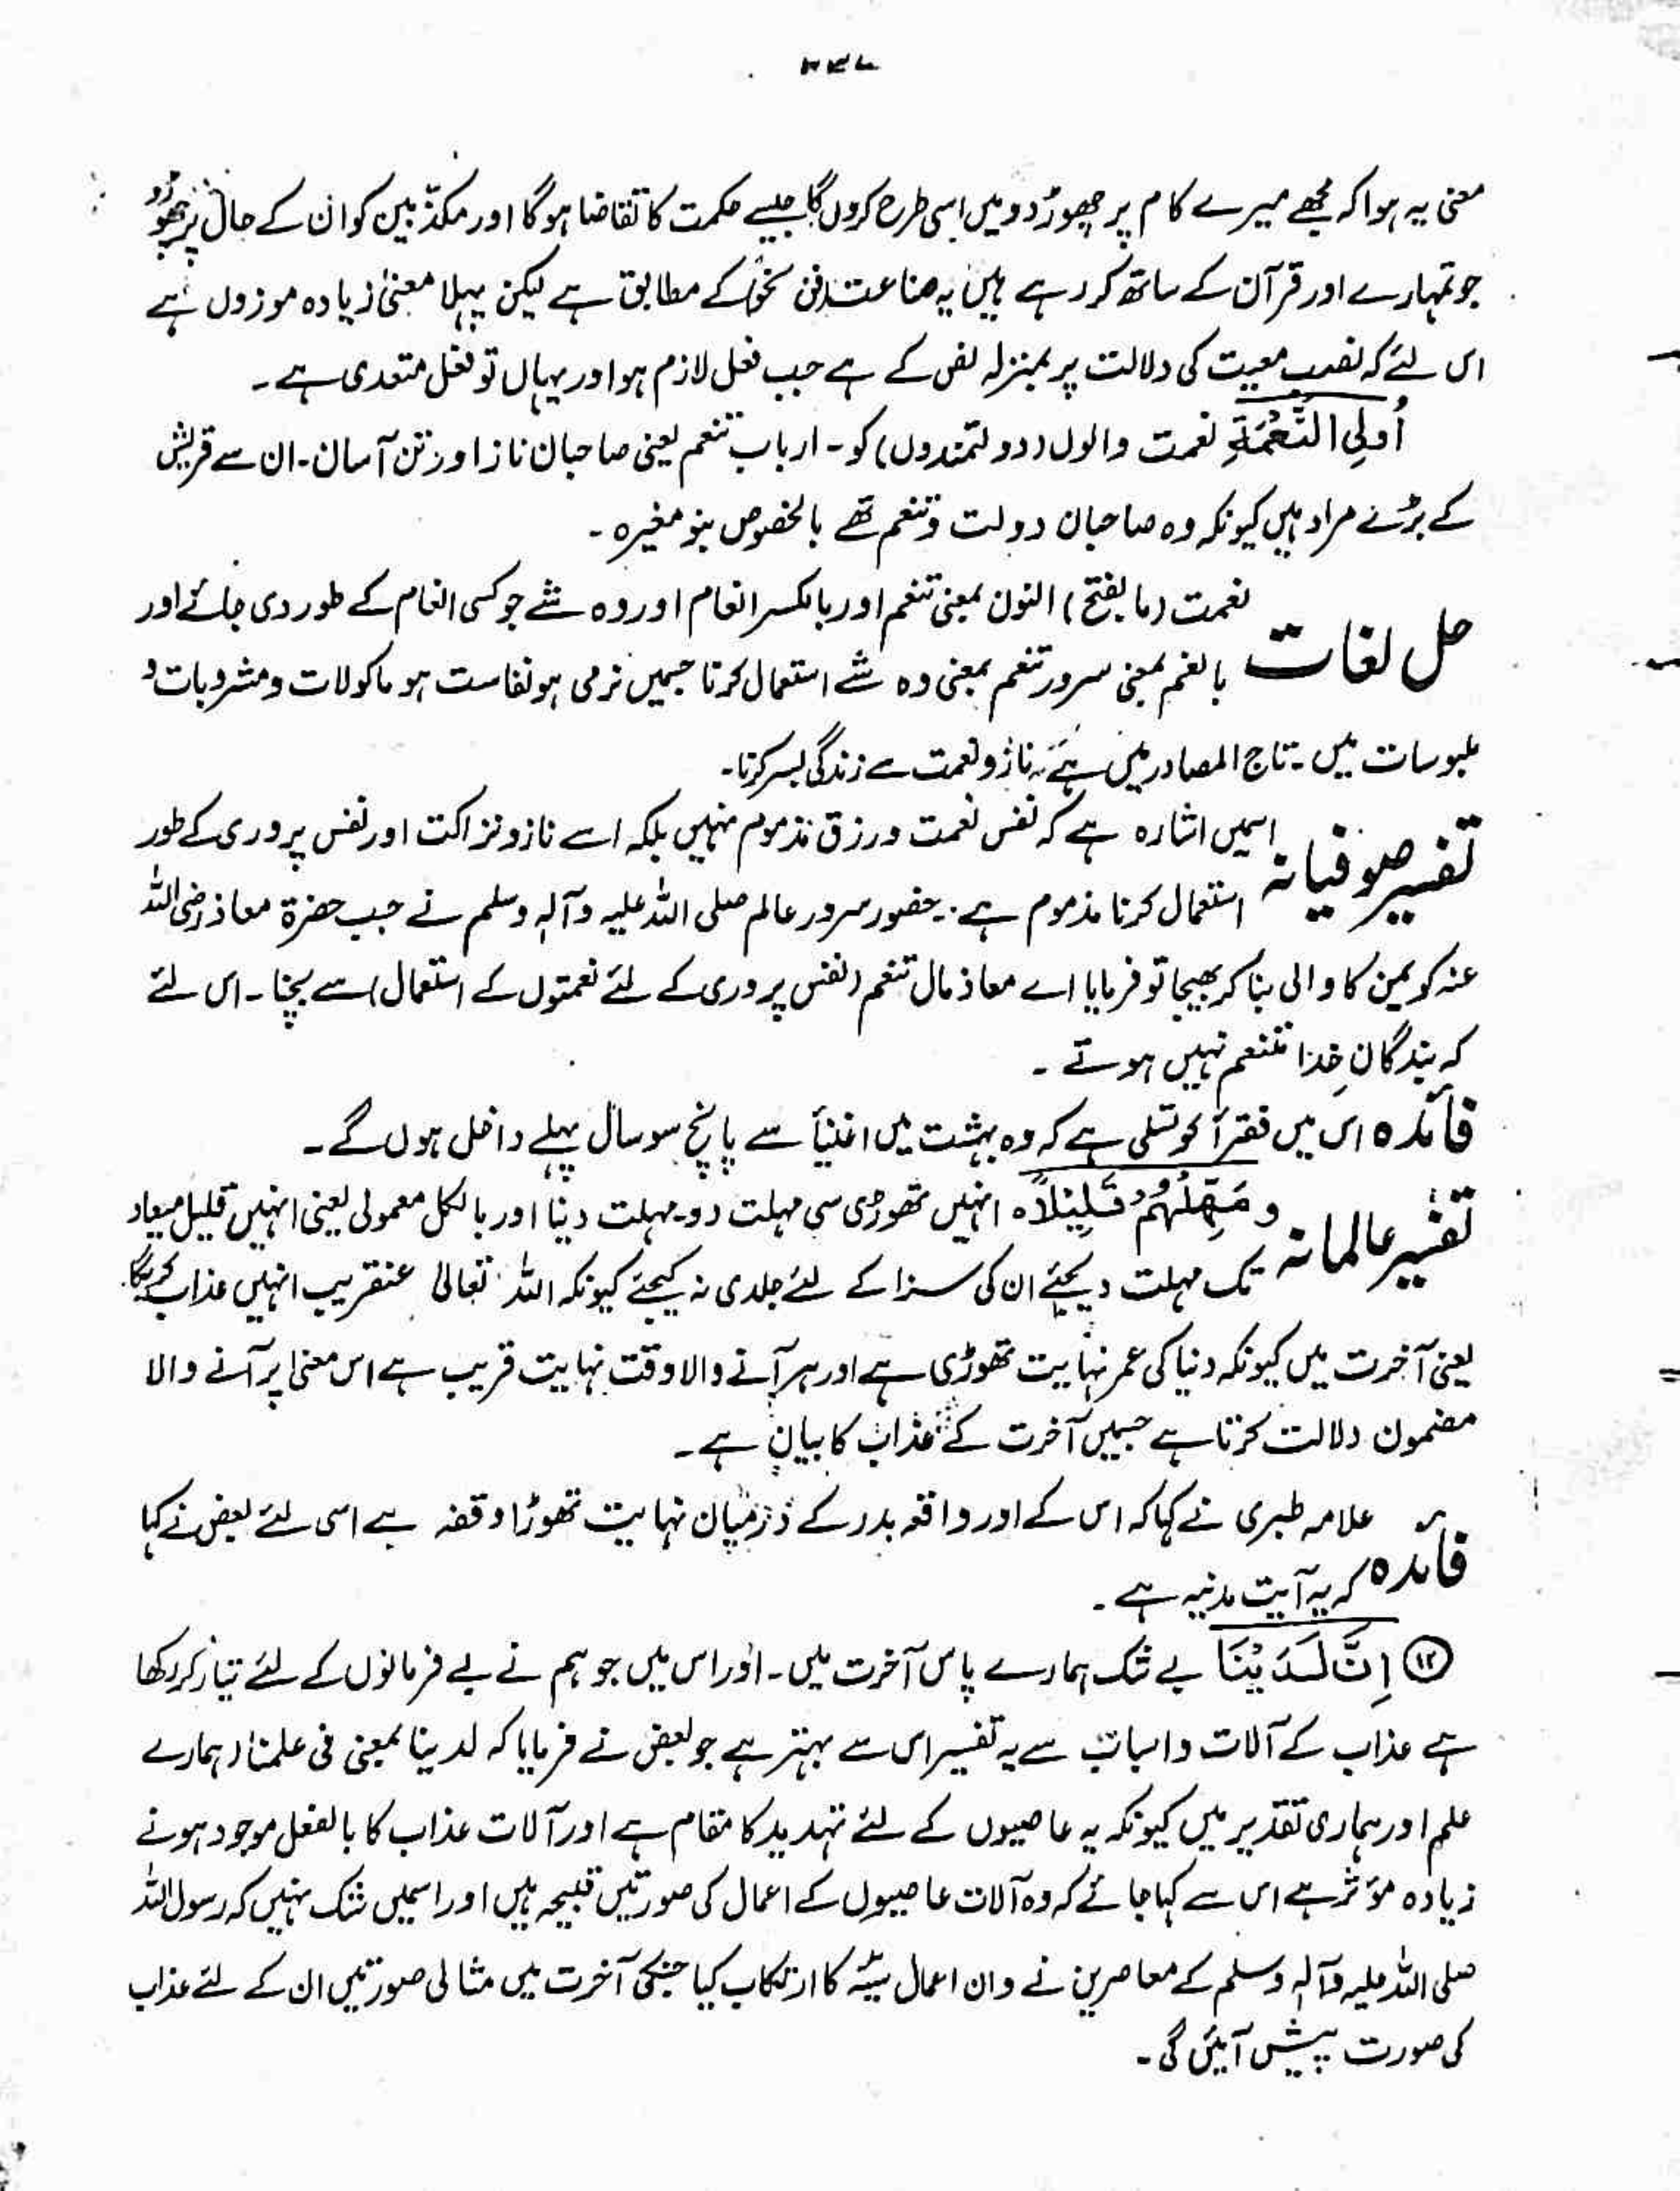 معنی یہ ہوا کہ مجھے میرے کام پر چھوڑ دو میں اسی طرح کروں گا جیسے حکمت کا تقاضا ہوگا اور مکذّبین کو ان کے حال پر چھوڑ دو
جو تمہارے اور قرآن کے ساتھ کر رہے ہیں یہ صناعت (فن نحو) کے مطابق ہے لیکن پہلا معنیٰ زیادہ موزوں ہے
اس لئے کہ نصب معیت کی دلالت پر بمنزلہ نفی کے ہے جب فعل لازم ہو اور یہاں تو فعل متعدی ہے ۔
اُولِی النَّعْمَةِ نعمت والوں (دولتمندوں) کو ۔ ارباب تنعم یعنی صاحبان ناز اور تن آسان ۔ ان سے قریش
کے بڑے مراد ہیں کیونکہ وہ صاحبان دولت و تنعم تھے بالخصوص بنو مغیرہ ۔
حل لغات نعمت (بالفتح) النون بمعنی تنعم اور بالکسر انعام اور وہ شے جو کسی انعام کے طور دی جائے اور
بالضم بمعنی سرور تنعم بمعنی وہ شے استعمال کرنا جسمیں نرمی ہو نفاست ہو ماکولات و مشروبات و
ملبوسات میں ۔ تاج المصادر میں ہے بہ ناز و نعمت سے زندگی بسر کرنا ۔
تفسیر صوفیانہ اسمیں اشارہ ہے کہ نفس نعمت ورزق مذموم نہیں بلکہ اسے ناز و نزاکت اور نفس پروری کے طور
استعمال کرنا مذموم ہے ۔ حضور سرور عالم صلی اللہ علیہ وآلہٖ وسلم نے جب حضرۃ معاذ رضی اللہ
عنہ کو یمن کا والی بنا کر بھیجا تو فرمایا اے معاذ مال تنعم (نفس پروری کے لئے نعمتوں کے استعمال) سے بچنا ۔ اس لئے
کہ بندگانِ خدا متنعم نہیں ہوتے ۔
فائدہ اس میں فقرأ کو تسلی ہے کہ وہ بہشت میں اغنیأ سے پانچ سو سال پہلے داخل ہوں گے ۔
تفسیر عالمانہ و مَهِّلْهُمْ قَلِيْلًا ہ انہیں تھوڑی سی مہلت دو ۔ مہلت دینا اور بالکل معمولی یعنی انہیں قلیل میعاد
تک مہلت دیجئے ان کی سزا کے لئے جلدی نہ کیجئے کیونکہ اللہ تعالیٰ عنقریب انہیں عذاب کریگا
یعنی آخرت میں کیونکہ دنیا کی عمر نہایت تھوڑی ہے اور ہر آنے والا وقت نہایت قریب ہے اس معنیٰ پر آنے والا
مضمون دلالت کرتا ہے جسمیں آخرت کے عذاب کا بیان ہے ۔
فائدہ علامہ طبری نے کہا کہ اس کے اور واقعہ بدر کے درمیان نہایت تھوڑا وقفہ ہے اسی لئے بعض نے کہا
کہ یہ آیت مدنیہ ہے ۔
⑫ اِنَّ لَدَيْنَا بے شک ہمارے پاس آخرت میں ۔ اور اس میں جو ہم نے بے فرمانوں کے لئے تیار کر رکھا
ہے عذاب کے آلات واسباب سے یہ تفسیر اس سے بہتر ہے جو بعض نے فرمایا کہ لدینا بمعنی فی علمنا (ہمارے
علم اور ہماری تقدیر میں کیونکہ یہ عاصیوں کے لئے تہدید کا مقام ہے اور آلات عذاب کا بالفعل موجود ہونے
زیادہ مؤثر ہے اس سے کہا جائے کہ وہ آلات عاصیوں کے اعمال کی صورتیں قبیحہ ہیں اور اسمیں شک نہیں کہ رسول اللہ
صلی اللہ علیہ وآلہٖ وسلم کے معاصرین نے وان اعمال سیّئہ کا ارتکاب کیا جنکی آخرت میں مثالی صورتیں ان کے لئے عذاب
کی صورت پیش آئیں گی ۔